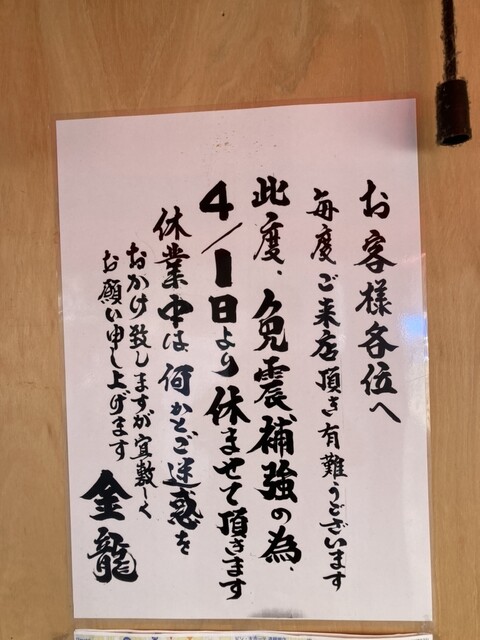 お客様各位へ
毎度ご来店頂き有難うございます
此度、免震補強の為、
4/1日より休ませて頂きます
休業中は何かとご迷惑を
おかけ致しますが宜敷しく
お願い申し上げます
金龍